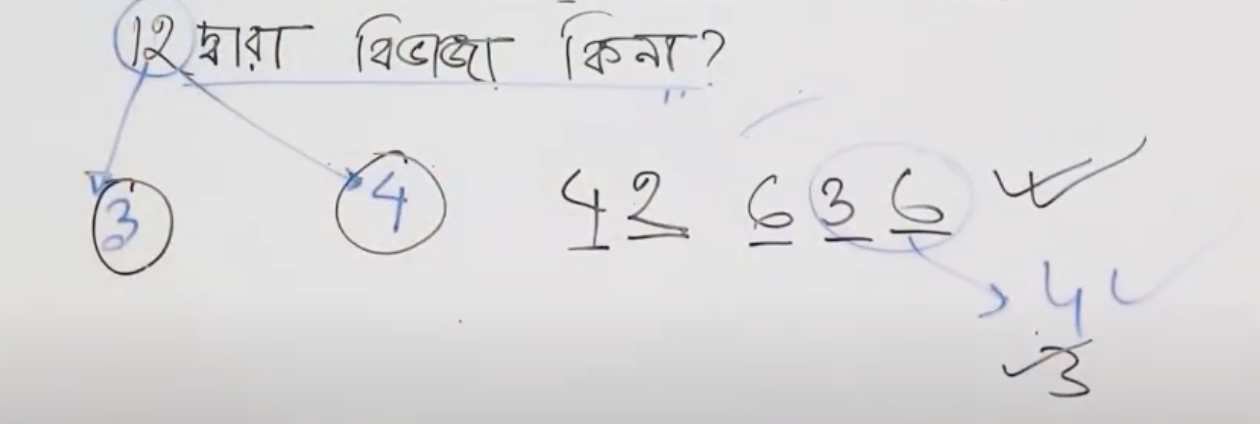 ১২ দ্বারা বিভাজ্য কিনা?
3 4 42 636
4
3